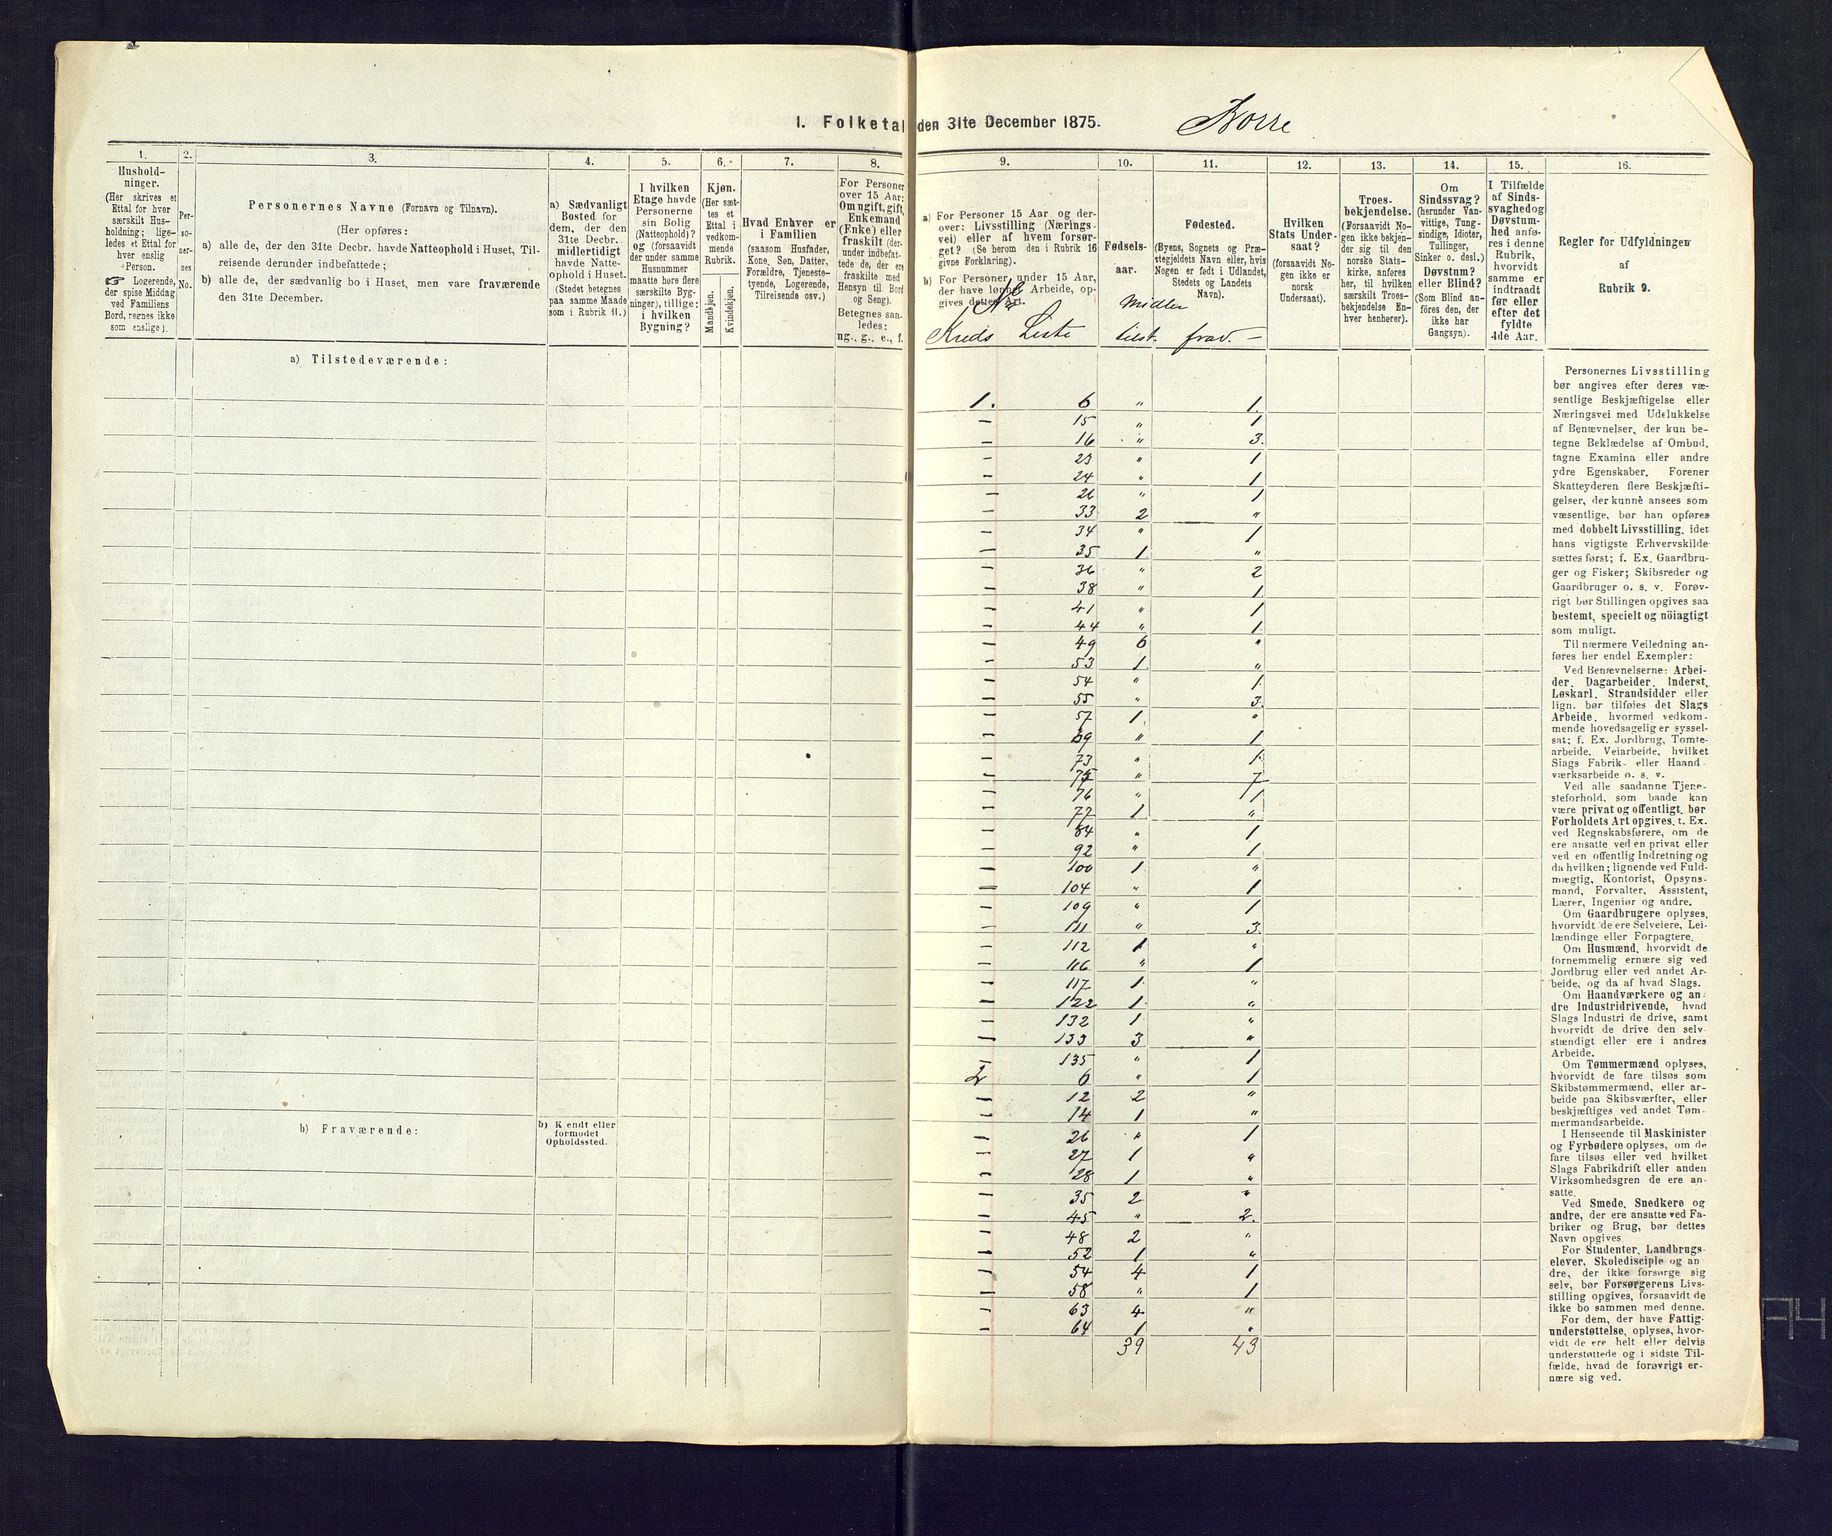 I. Folketal den 31te December 1875.
Borre
1.
Hushold-
ninger.
(Her skrives et
Ettal for hver
særskilt Hus-
holdning; lige-
ledes et Ettal for
hver enslig
Person.
☞ Logerende,
der spise Middag
ved Familiens
Bord, regnes ikke
som enslige).
2.
Per-
so-
ner-
nes
No.
3.
Personernes Navne (Fornavn og Tilnavn).
(Her opføres:
a) alle de, der den 31te Decbr. havde Natteophold i Huset, Til-
reisende derunder indbefattede;
b) alle de, der sædvanlig bo i Huset, men vare fraværende
den 31te December.
4.
a) Sædvanligt
Bosted for
dem, der den
31te Decbr.
midlertidigt
havde Natte-
ophold i Huset.
(Stedet betegnes
paa samme Maade
som i Rubrik 11.)
5.
I hvilken
Etage havde
Personerne
sin Bolig
(Natteophold)?
og (forsaavidt
der under samme
Husnummer
maatte høre flere
særskilte Byg-
ninger), tillige:
i hvilken
Bygning?
6.
Kjøn.
(Her sæt-
tes et
Ettal i
vedkom-
mende
Rubrik.
Mandkjøn.
Kvindekjøn.
7.
Hvad Enhver er
i Familien
(saasom Husfader,
Kone, Søn, Datter,
Forældre, Tjeneste-
tyende, Logerende,
Tilreisende osv.)
8.
For Personer
over 15 Aar:
Om ugift, gift,
Enkemand
(Enke) eller
fraskilt (der-
under indbefat-
tede de, der ere
fraskilte med
Hensyn til Bord
og Seng).
Betegnes saa-
ledes:
ug., g., e., f.
9.
a) For Personer 15 Aar og der-
over: Livsstilling (Nærings-
vei) eller af hvem forsør-
get? (Se herom den i Rubrik 16
givne Forklaring).
b) For Personer under 15 Aar,
der have lønnet Arbeide, op-
gives dettes Art.
10.
Fødsels-
aar.
11.
Fødested.
(Byens, Sognets og Præ-
stegjeldets Navn eller, hvis
Nogen er født i Udlandet,
Stedets og Landets
Navn).
12.
Hvilken
Stats Under-
saat?
(forsaavidt No-
gen ikke er
norsk
Undersaat).
13.
Troes-
bekjendelse.
(Forsaavidt No-
gen ikke bekjen-
der sig til den
norske Stats-
kirke, anføres
her, til hvilken
særskilt Troes-
bekjendelse En-
hver henhører).
14.
Om
Sindssvag?
(herunder Van-
vittige, Tung-
sindige, Idioter,
Tullinger,
Sinker o. desl.)
Døvstum?
eller Blind?
(Som Blind an-
føres den, der
ikke har
Gangsyn).
15.
I Tilfælde
af Sinds-
svaghed og
Døvstum-
hed anfø-
res i denne
Rubrik,
hvorvidt
samme er
indtraadt
før eller
efter det
fyldte
4de Aar.
16.
Regler for Udfyldningen
af
Rubrik 9.
No Midler
Kreds Liste tilst. frav. —
a) Tilstedeværende:
1. 6 " 1.
— 15 " 1
— 16 " 3.
— 23 " 1
— 24 " 1
— 26 " 1
— 33 2 "
— 34 " 1
— 35 1 "
— 36 " 2
— 38 " 1
— 41 " 1
— 44 " 1
— 49 6 "
— 53 1 "
— 54 " 1
— 55 " 3.
— 57 1 "
— 69 " 1
— 73 " 1
— 75 " 7
— 76 " 1
— 77 1 "
— 84 " 1
— 92 " 1
— 100 1 "
— 104 " 1
— 109 " 1
— 111 " 3.
— 112 1 "
— 116 " 1
— 117 1 "
— 122 1 "
— 132 1 "
— 133 3 "
— 135 " 1
2 6 " 1
— 12 2 "
— 14 1 "
— 26 " 1
— 27 1 "
— 28 1 "
— 35 2 "
— 45 " 2.
— 48 2 "
— 52 1 "
— 54 4 1
— 58 " 1
— 63 4 "
— 64 1 "
39 43
b) Fraværende:
b) Kjendt eller
formodet
Opholdssted.
Personernes Livsstilling
bør angives efter deres væ-
sentlige Beskjæftigelse eller
Næringsvei med Udelukkelse
af Benævnelser, der kun be-
tegne Beklædelse af Ombud,
tagne Examina eller andre
ydre Egenskaber. Forener
Skatteyderen flere Beskjæfti-
gelser, der kunne ansees som
væsentlige, bør han opføres
med dobbelt Livsstilling, idet
hans vigtigste Erhvervskilde
sættes først; f. Ex. Gaardbru-
ger og Fisker; Skibsreder og
Gaardbruger o. s. v. Forøv-
rigt bør Stillingen opgives saa
bestemt, specielt og nöiagtigt
som muligt.
Til nærmere Veiledning an-
føres her endel Exempler:
Ved Benævnelserne: Arbei-
der, Dagarbeider, Inderst,
Løskarl, Strandsidder eller
lign. bør tilføies det Slags
Arbeide, hvormed vedkom-
mende hovedsagelig er syssel-
sat; f. Ex. Jordbrug, Tomte-
arbeide, Veiarbeide, hvilket
Slags Fabrik- eller Haand
værksarbeide o. s. v.
Ved alle saadanne Tjene-
steforhold, som baade kan
være privat og offentligt, bør
Forholdets Art opgives, t. Ex.
ved Regnskabsførere, om de
ere ansatte ved en privat eller
ved en offentlig Indretning og
da hvilken; lignende ved Fuld-
mægtig, Kontorist, Opsyns-
mand, Forvalter, Assistent,
Lærer, Ingeniør og andre.
Om Gaardbrugere oplyses,
hvorvidt de ere Selveiere, Lei-
lændinge eller Forpagtere.
Om Husmænd, hvorvidt de
fornemmelig ernære sig ved
Jordbrug eller ved andet Ar-
beide, og da af hvad Slags.
Om Haandværkere og an-
dre Industridrivende, hvad
Slags Industri de drive, samt
hvorvidt de drive den selv-
stændigt eller ere i andres
Arbeide.
Om Tømmermænd oplyses,
hvorvidt de fare tilsøs som
Skibstømmermænd, eller ar-
beide paa Skibsværfter, eller
beskjæftiges ved andet Tøm-
mermandsarbeide.
I Henseende til Maskinister
og Fyrbødere oplyses, om de
fare tilsøs eller ved hvilket
Slags Fabrikdrift eller anden
Virksomhedsgren de ere an-
satte.
Ved Smede, Snedkere og
andre, der ere ansatte ved Fa-
briker og Brug, bør dettes
Navn opgives
For Studenter, Landbrugs-
elever, Skoledisciple og an
dre, der ikke forsørge sig
selv, bør Forsørgerens Livs-
stilling opgives, forsaavidt de
ikke bo sammen med denne.
For dem, der have Fattig-
understøttelse, oplyses, hvor-
vidt de ere helt eller delvis
understøttede og i sidste Til-
fælde, hvad de forøvrigt er-
nære sig ved.